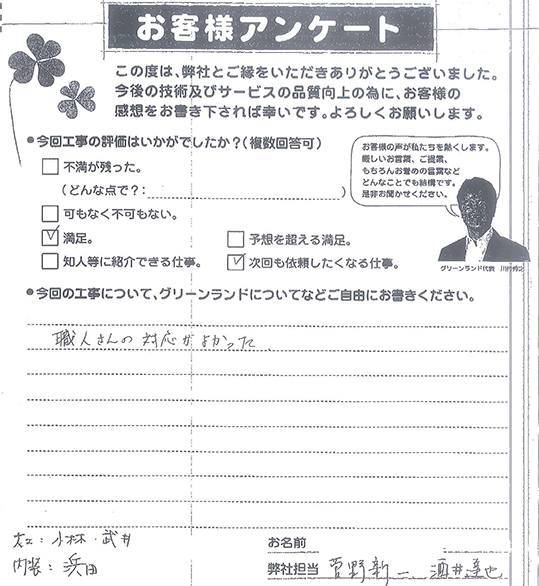 お客様アンケート
この度は、弊社とご縁をいただきありがとうございました。
今後の技術及びサービスの品質向上の為に、お客様の
感想をお書き下されば幸いです。よろしくお願いします。
●今回工事の評価はいかがでしたか？(複数回答可)
不満が残った。
(どんな点で？: )
可もなく不可もない。
満足。
予想を超える満足。
知人等に紹介できる仕事。
次回も依頼したくなる仕事。
お客様の声が私たちを熱くします。
厳しいお言葉、ご提案、
もちろんお誉めの言葉など
どんなことでも結構です。
是非お聞かせください。
グリーンランド代表
●今回の工事について、グリーンランドについてなどご自由にお書きください。
職人さんの対応がよかった
大工: 小林・武井
内装: 浜田
お名前
弊社担当 菅野新一、酒井達也